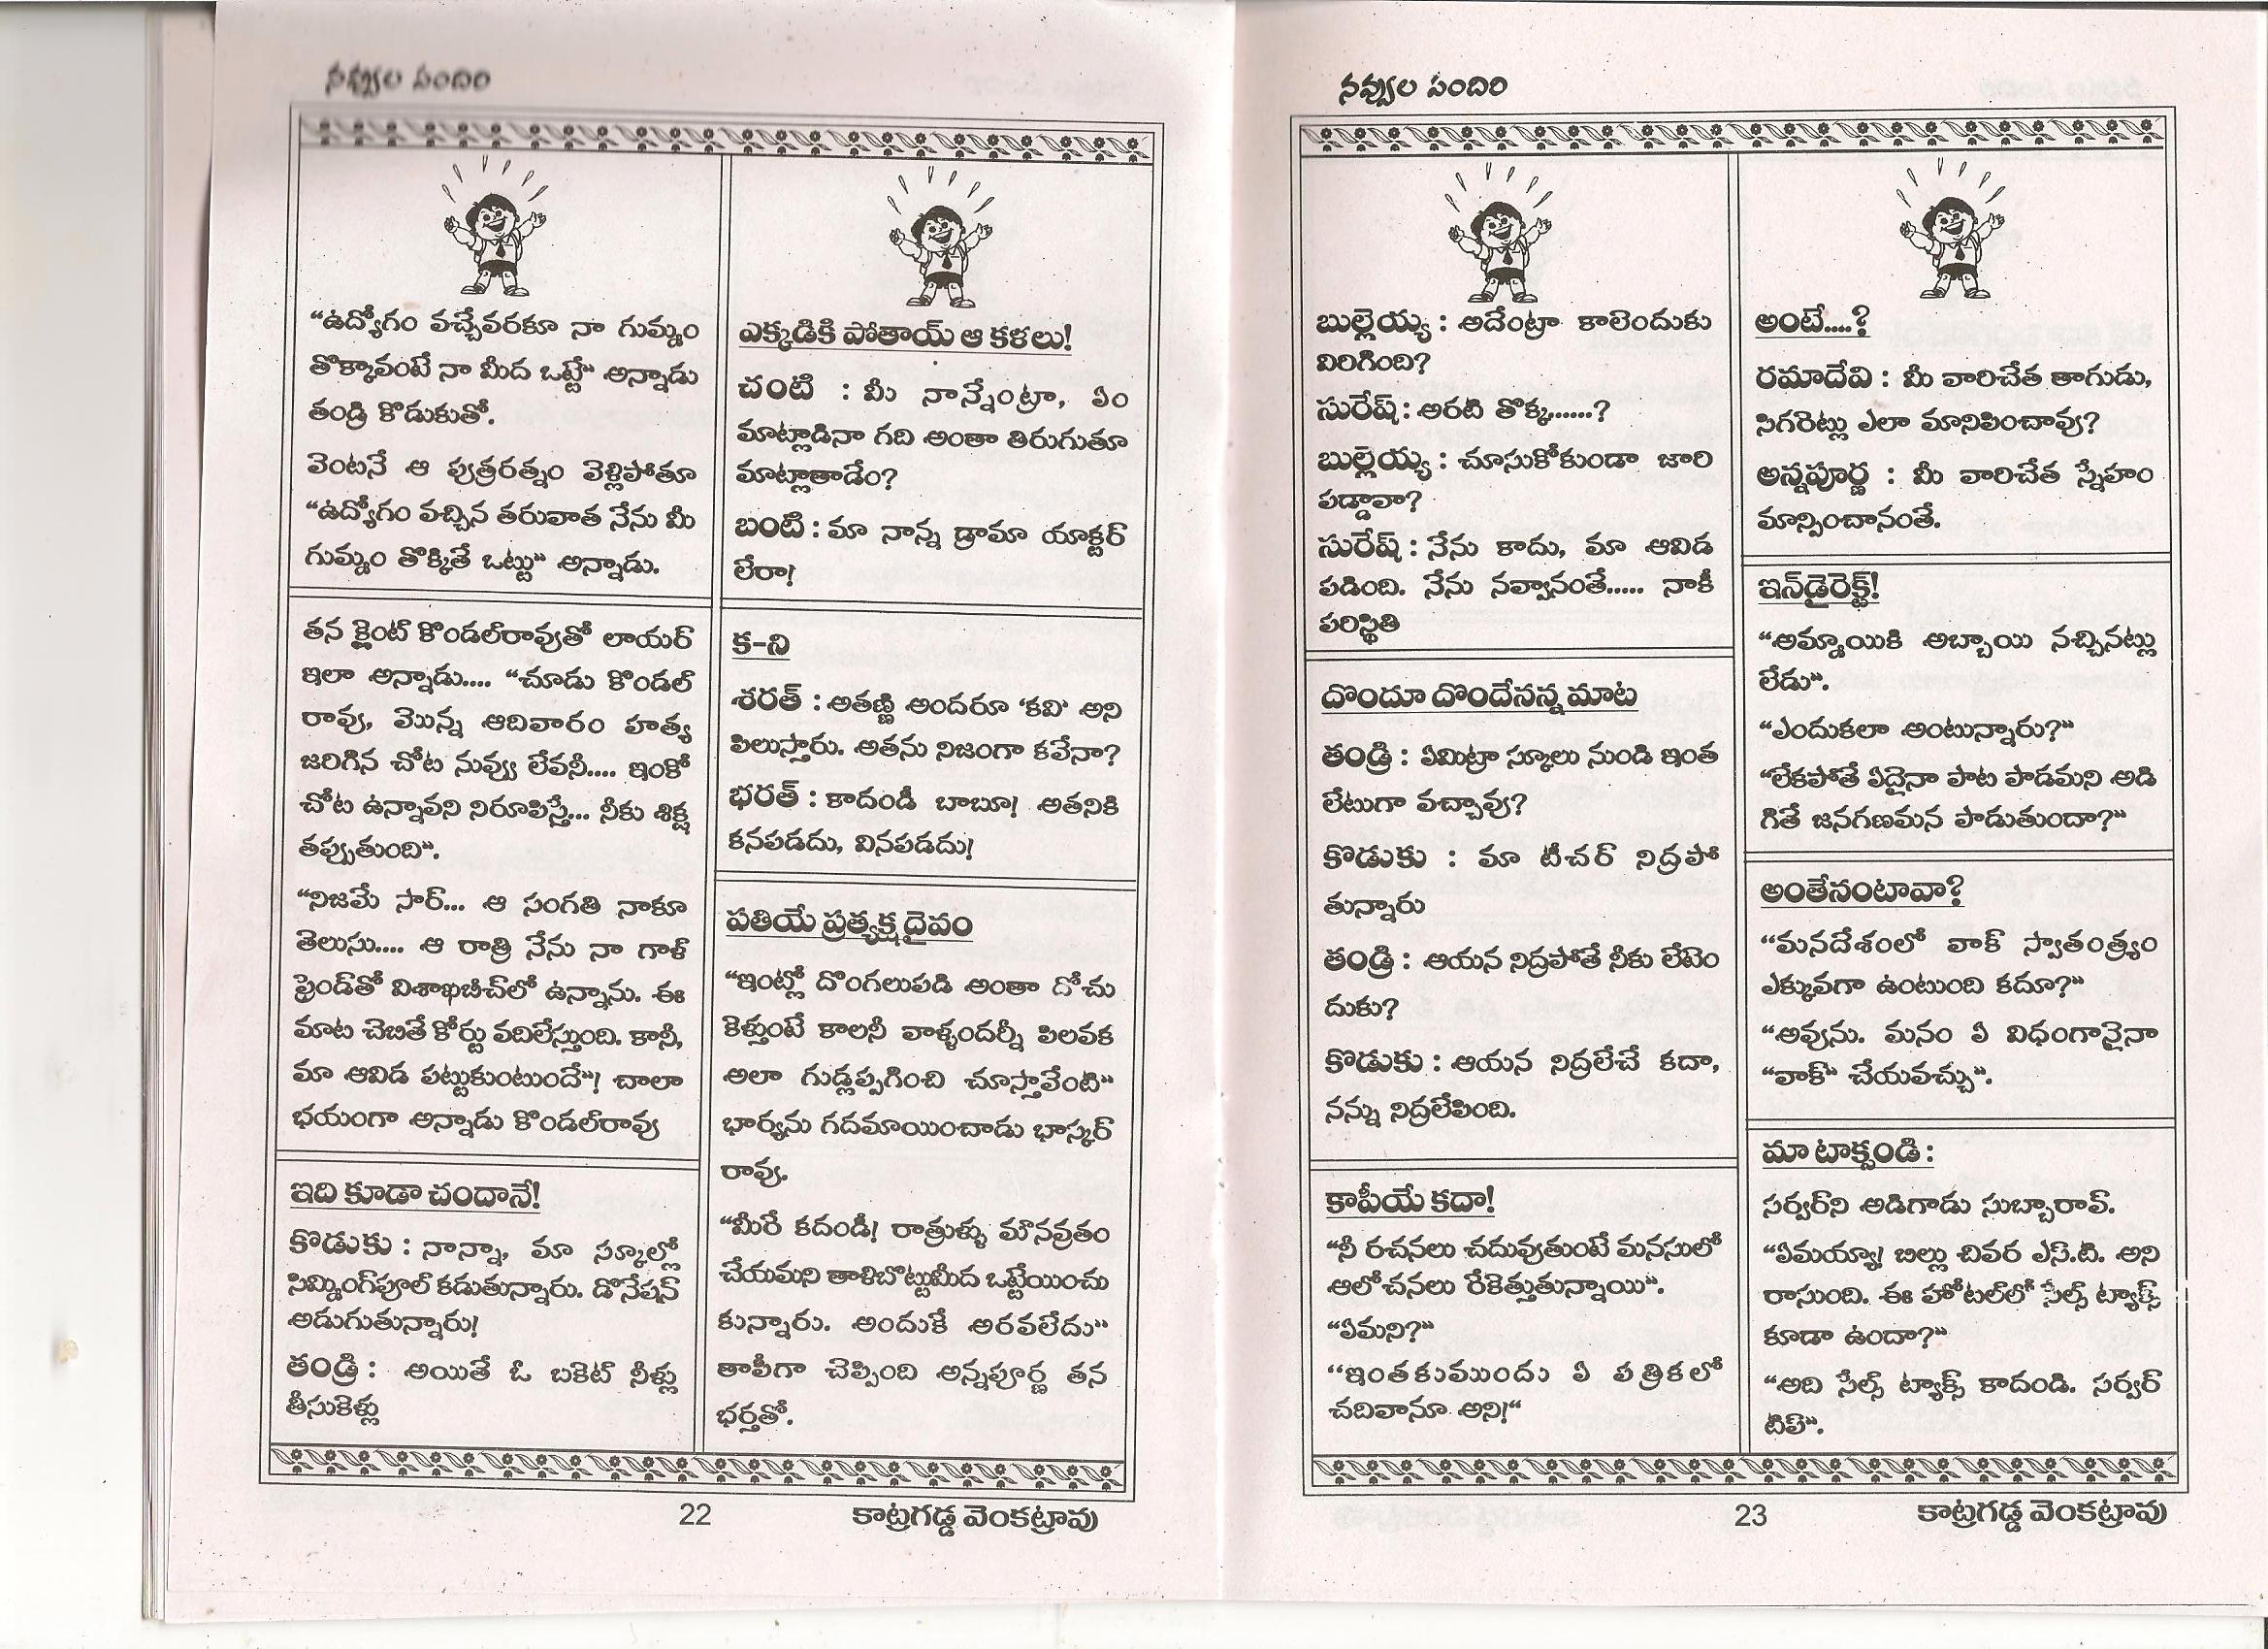 నవ్వుల పందిరి
“ఉద్యోగం వచ్చేవరకూ నా గుమ్మం
తొక్కావంటే నా మీద ఒట్టే” అన్నాడు
తండ్రి కొడుకుతో.
వెంటనే ఆ పుత్రరత్నం వెళ్లిపోతూ
“ఉద్యోగం వచ్చిన తరువాత నేను మీ
గుమ్మం తొక్కితే ఒట్టు” అన్నాడు.
తన క్లైంట్ కొండల్‌రావుతో లాయర్
ఇలా అన్నాడు.... “చూడు కొండల్
రావు, మొన్న ఆదివారం హత్య
జరిగిన చోట నువ్వు లేవనీ.... ఇంకో
చోట ఉన్నావని నిరూపిస్తే... నీకు శిక్ష
తప్పుతుంది”.
“నిజమే సార్... ఆ సంగతి నాకూ
తెలుసు.... ఆ రాత్రి నేను నా గాళ్
ఫ్రెండ్‌తో విశాఖబీచ్‌లో ఉన్నాను. ఈ
మాట చెబితే కోర్టు వదిలేస్తుంది. కానీ,
మా ఆవిడ పట్టుకుంటుందే”! చాలా
భయంగా అన్నాడు కొండల్‌రావు
ఇది కూడా చందానే!
కొడుకు : నాన్నా, మా స్కూల్లో
సిమ్మింగ్‌పూల్ కడుతున్నారు. డొనేషన్
అడుగుతున్నారు!
తండ్రి : అయితే ఓ బకెట్ నీళ్లు
తీసుకెళ్లు
ఎక్కడికి పోతాయ్ ఆ కళలు!
చంటి : మీ నాన్నేంట్రా, ఏం
మాట్లాడినా గది అంతా తిరుగుతూ
మాట్లాతాడేం?
బంటి : మా నాన్న డ్రామా యాక్టర్
లేరా!
క-ని
శరత్ : అతణ్ణి అందరూ ‘కవి’ అని
పిలుస్తారు. అతను నిజంగా కవేనా?
భరత్ : కాదండీ బాబూ! అతనికి
కనపడదు, వినపడదు!
పతియే ప్రత్యక్ష దైవం
“ఇంట్లో దొంగలుపడి అంతా దోచు
కెళ్తుంటే కాలనీ వాళ్ళందర్నీ పిలవక
అలా గుడ్లప్పగించి చూస్తావేంటి”
భార్యను గదమాయించాడు భాస్కర్
రావు.
“మీరే కదండీ! రాత్రుళ్ళు మౌనవ్రతం
చేయమని తాళిబొట్టుమీద ఒట్టేయించు
కున్నారు. అందుకే అరవలేదు”
తాపీగా చెప్పింది అన్నపూర్ణ తన
భర్తతో.
22
కాట్రగడ్డ వెంకట్రావు
నవ్వుల పందిరి
బుల్లెయ్య : అదేంట్రా కాలెందుకు
విరిగింది?
సురేష్ : అరటి తొక్క......?
బుల్లెయ్య : చూసుకోకుండా జారి
పడ్డావా?
సురేష్ : నేను కాదు, మా ఆవిడ
పడింది. నేను నవ్వానంతే..... నాకీ
పరిస్థితి
దొందూ దొందేనన్న మాట
తండ్రి : ఏమిట్రా స్కూలు నుండి ఇంత
లేటుగా వచ్చావు?
కొడుకు : మా టీచర్ నిద్రపో
తున్నారు
తండ్రి : ఆయన నిద్రపోతే నీకు లేటెం
దుకు?
కొడుకు : ఆయన నిద్రలేచే కదా,
నన్ను నిద్రలేపింది.
కాపీయే కదా!
“నీ రచనలు చదువుతుంటే మనసులో
ఆలోచనలు రేకెత్తుతున్నాయి”.
“ఏమని?”
“ఇంతకుముందు ఏ పత్రికలో
చదివానూ అని!“
అంటే....?
రమాదేవి : మీ వారిచేత తాగుడు,
సిగరెట్లు ఎలా మానిపించావు?
అన్నపూర్ణ : మీ వారిచేత స్నేహం
మాన్పించానంతే.
ఇన్‌డైరెక్ట్!
“అమ్మాయికి అబ్బాయి నచ్చినట్లు
లేడు”.
“ఎందుకలా అంటున్నారు?”
“లేకపోతే ఏదైనా పాట పాడమని అడి
గితే జనగణమన పాడుతుందా?”
అంతేనంటావా?
“మనదేశంలో వాక్ స్వాతంత్ర్యం
ఎక్కువగా ఉంటుంది కదూ?”
“అవును. మనం ఏ విధంగానైనా
“వాక్” చేయవచ్చు”.
మా టాక్సండి :
సర్వర్‌ని అడిగాడు సుబ్బారావ్.
“ఏమయ్యా! బిల్లు చివర ఎస్.టి. అని
రాసుంది. ఈ హోటల్‌లో సేల్స్ ట్యాక్స్
కూడా ఉందా?”
“అది సేల్స్ ట్యాక్స్ కాదండి. సర్వర్
టిప్”.
23
కాట్రగడ్డ వెంకట్రావు